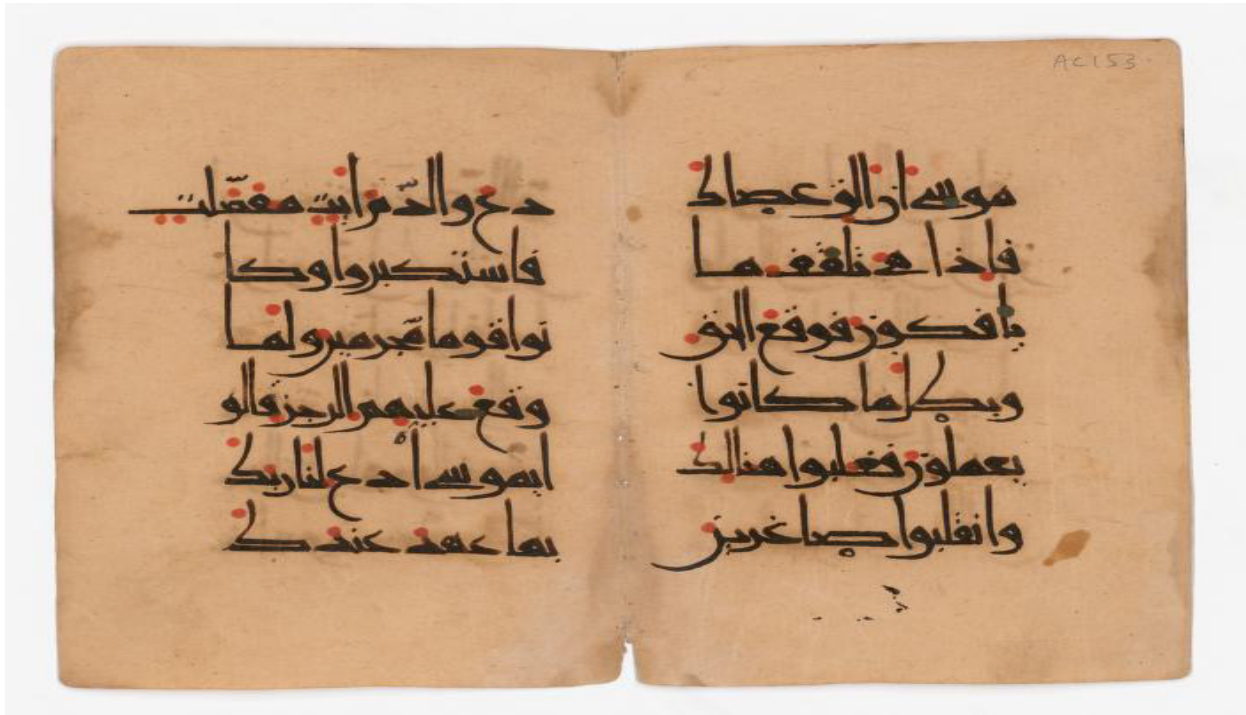 AC153.
موسى ان الق عصاك
فاذا هى تلقف ما
يافكون فوقع الحق
وبطل ما كانوا
يعملون فغلبوا هنالك
وانقلبوا صاغرين
دع والدّم ايت مفصّلت
فاستكبروا وكا
نوا قوما مّجرمين ولما
وقع عليهم الرجز قالو
ا يموسى ادع لنا ربك
بما عهد عندك